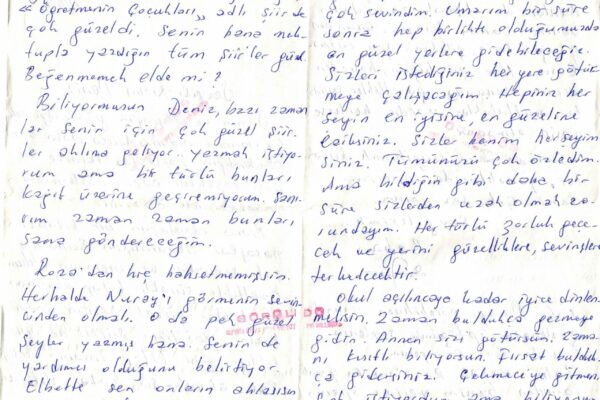 « Öğretmenin Çocukları „ adlı şiir de
çok güzeldi. Senin bana mek-
tupla yazdığın tüm şiirler güzel.
Beğenmemek elde mi?
Biliyormusun Deniz, bazı zaman
lar senin için çok güzel şiir-
ler aklına geliyor. yazmak istiyo-
rum ama bir türlü bunları
kâğıt üzerine geçiremiyorum. Sanı-
rum zaman zaman bunları,
sana göndereceğim.
Roza'dan hiç bahsetmemişsin.
Herhalde Nuray'ı görmenin sevin
cinden olmalı. O da pek güzel
şeyler yazmış bana. Senin de
yardımcı olduğunu belirtiyor.
Elbette sen onların ablasısın
çok sevindim. Umarım bir süre
sonra hep birlikte olduğumuzda
en güzel yerlere gidebileceğiz.
Sizleri istediğiniz her yere götür
meye çalışacağım. Hepiniz her
şeyin en iyisine, en güzeline
lâiksiniz. Sizler benim herşeyim
siniz. Tümünüzü çok özledim.
Ama bildiğin gibi daha bir
süre sizlerden uzak olmak zo-
rundayım. Her türlü zorluk geçe-
cek ve yerini güzelliklere, sevinçlere
terkedecektir.
Okul açılıncaya kadar iyice dinlen
melisin. Zaman buldukça gezmeye
gidin. Annen sizi götürsün. Zama-
nı kısıtlı biliyorsun. Fırsat bulduk
ça gidersiniz. Çekmece'ye gitmeni
çok istiyordum ama biliyorsun